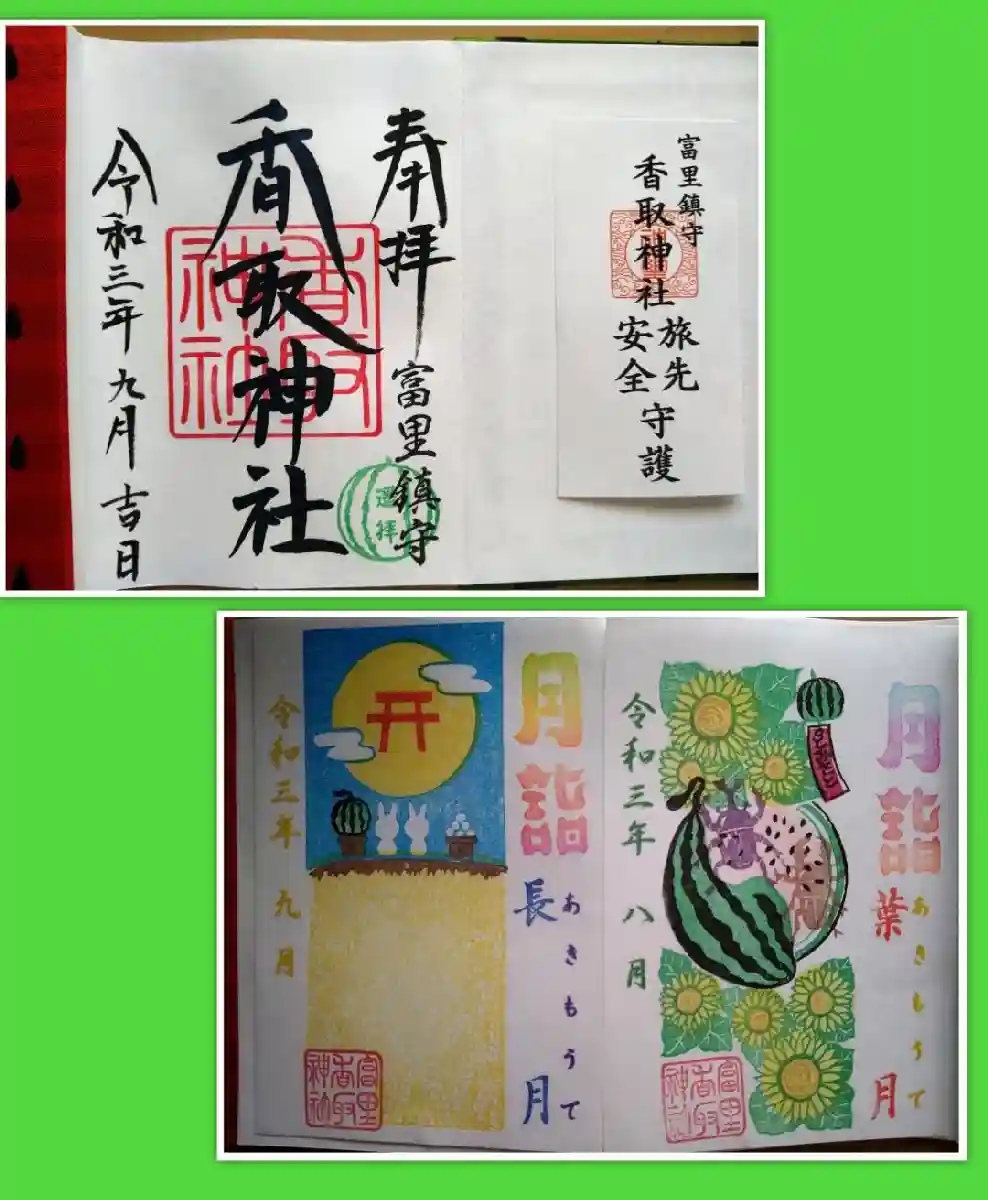 奉拝
富里鎮守
香取神社
香取神社
遥拝
令和三年 九月 吉日
富里鎮守
香取神社
旅先
安全
守護
月詣
長月
あきもうて
令和三年 九月
富里
香取
神社
月詣
葉月
令和三年 八月
富里
香取
神社